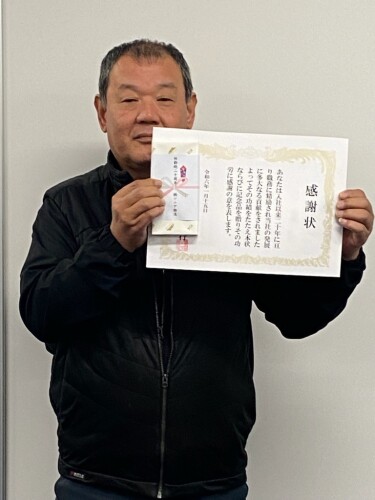 感謝状
あなたは入社以来二十年に亘
り職務に精励され当社の発展
に多大なる貢献をされました
よってその功績をたたえ本状
ならびに記念品を贈りその功
労に感謝の意を表します。
令和六年一月十五日